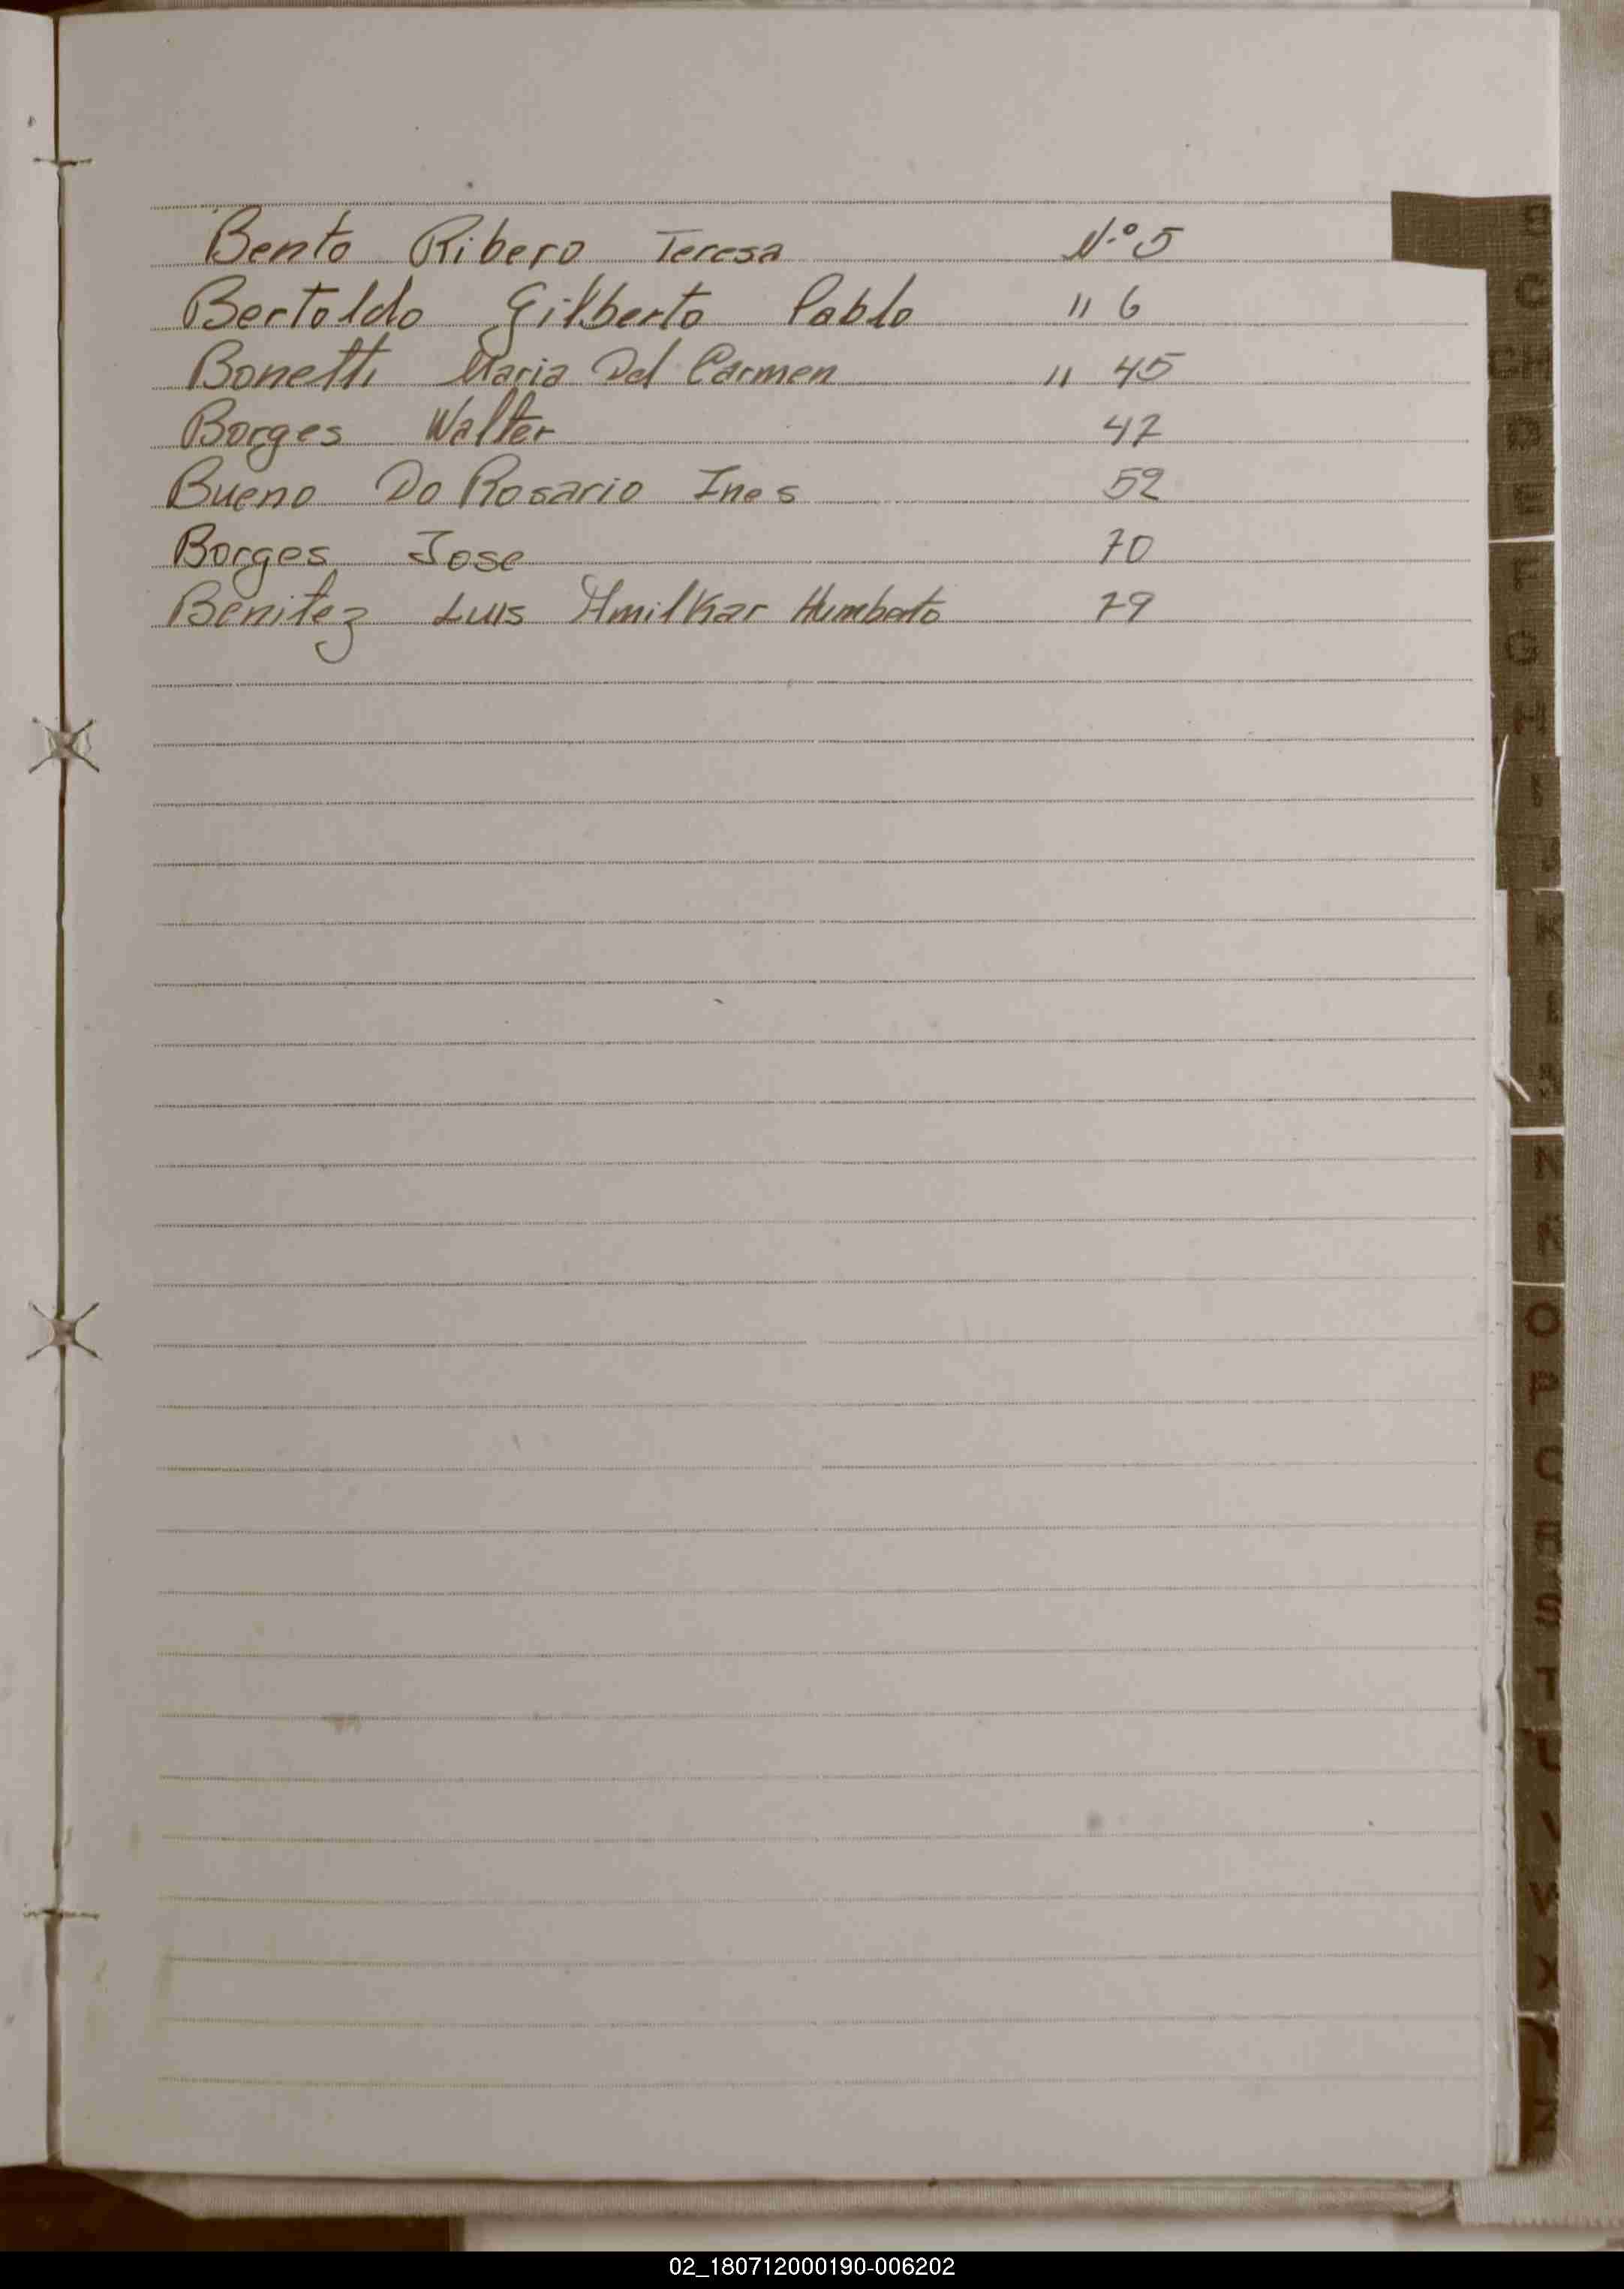 Bento Ribero Teresa N.º 5
Bertoldo Gilberto Pablo " 6
Bonetti Maria Del Carmen " 45
Borges Walter 47
Bueno Do Rosario Ines 52
Borges Jose 70
Benitez Luis Amilkar Humberto 79
B
C
CH
D
E
F
G
H
I
J
K
L
M
N
Ñ
O
P
Q
R
S
T
U
V
X
Z
02_180712000190-006202